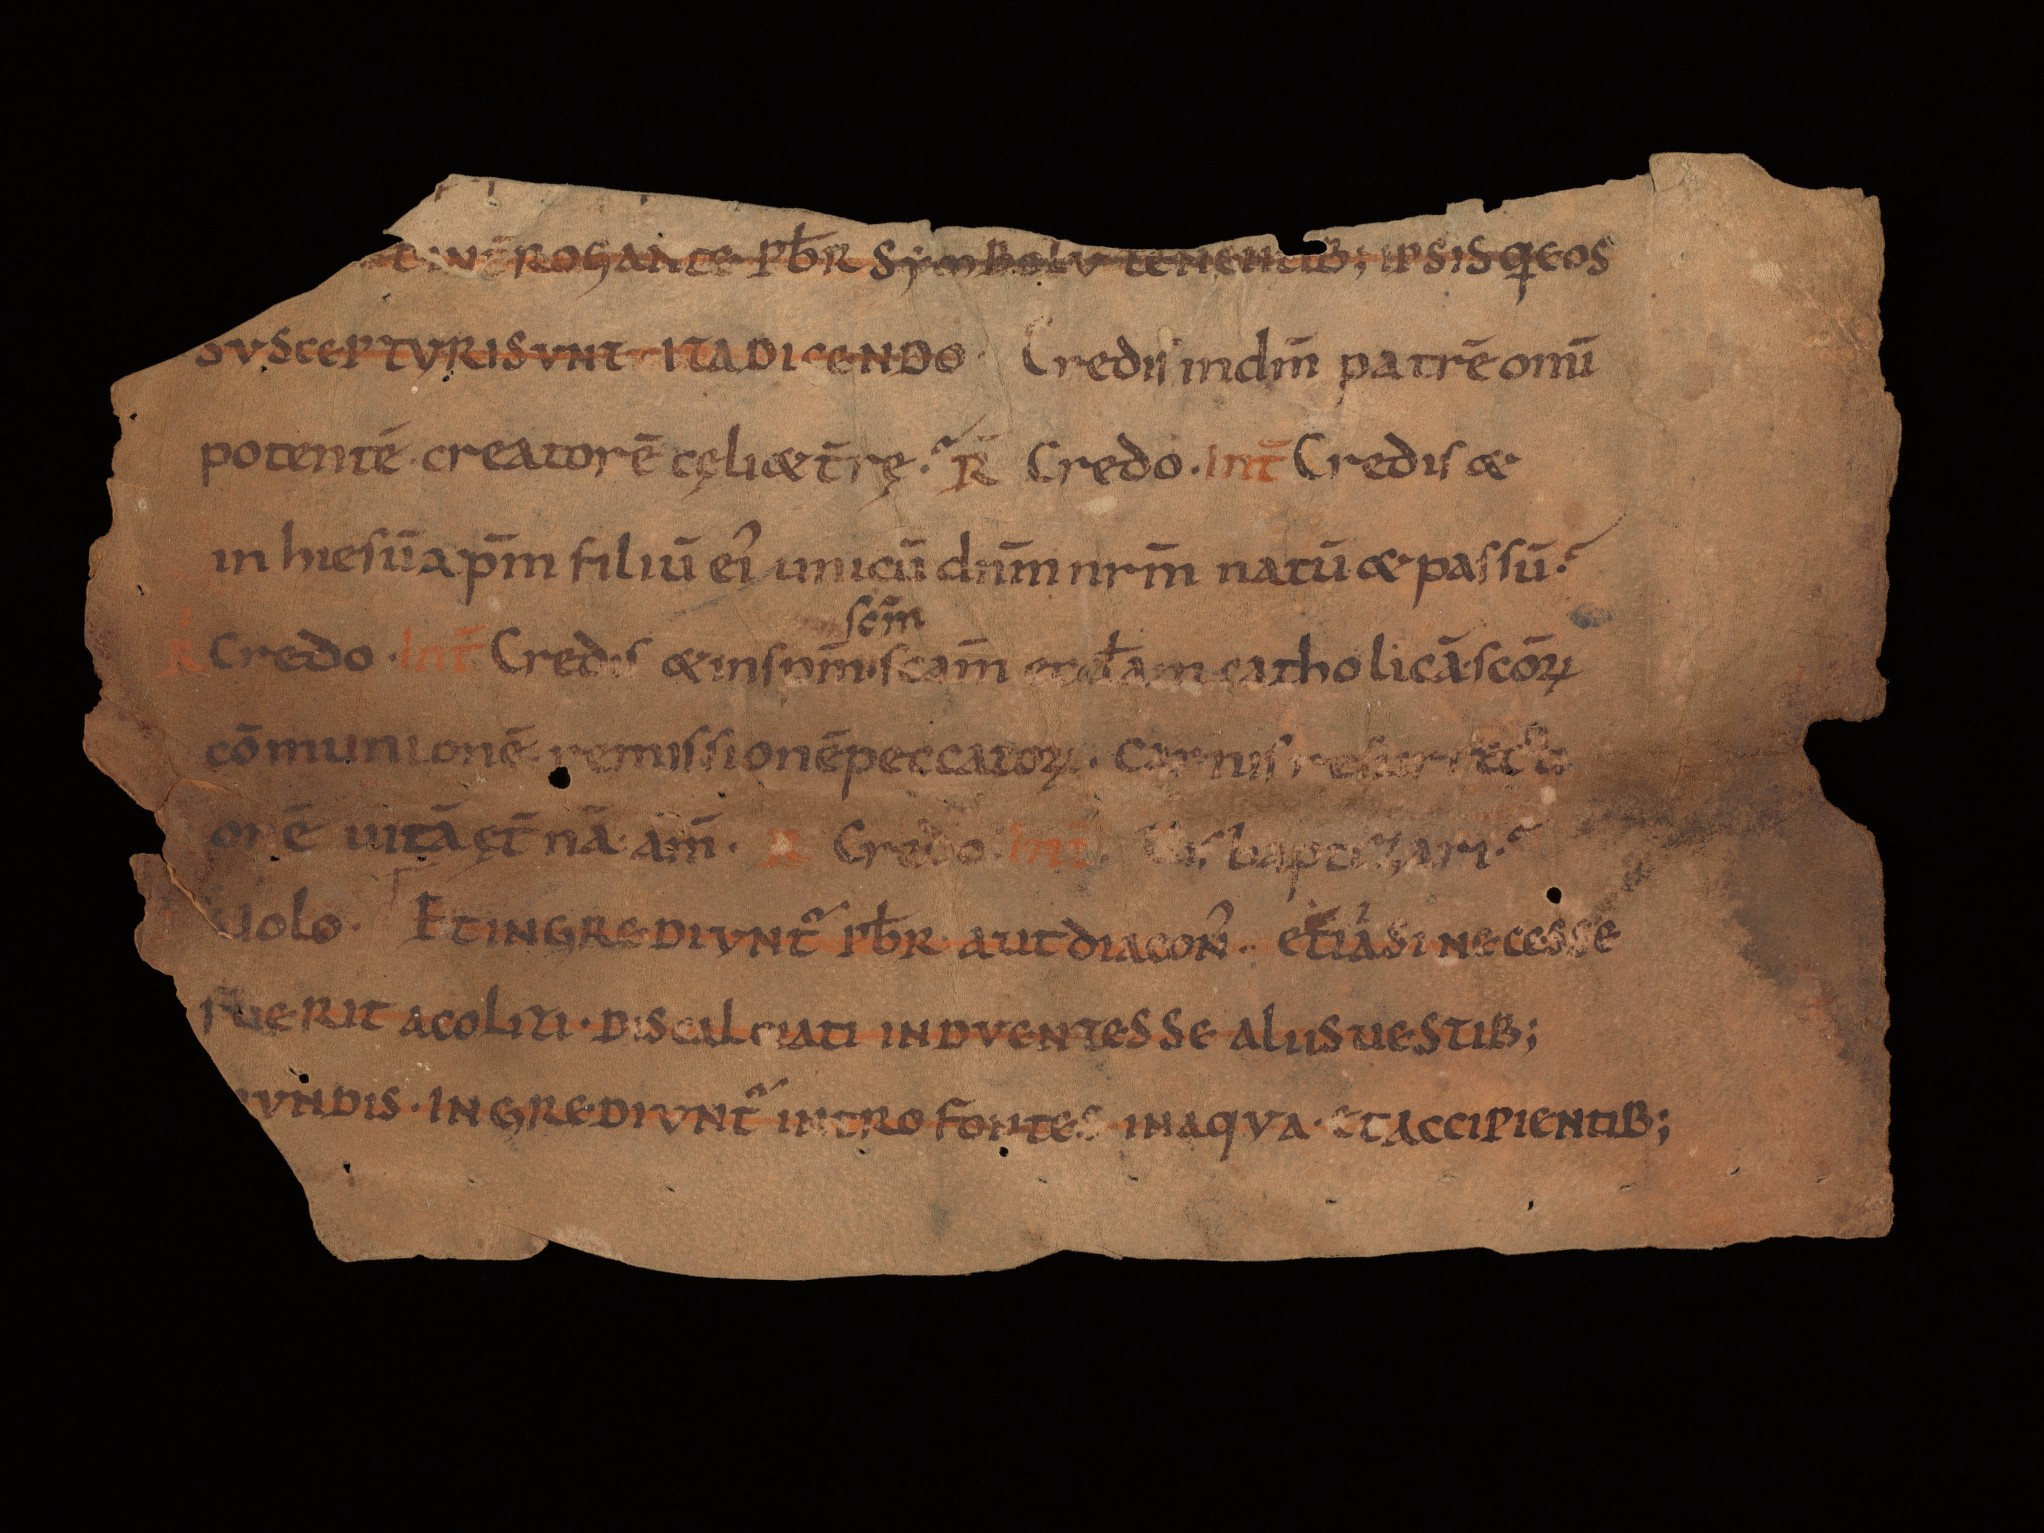 INT̄ROGANTE P̄BR SYMBOLV TENENTIB; IPSISQ̄EOS
SVSCEPTVRISVNT ITADICENDO. Credis indm̄ patrē omī
potentē. creatorē cęli&t̄rę. R̄ Credo. Int̄ Credis &
in hiesū xp̄m filiū ei' unicū dn̄m nr̄m natū & passū.
R̄ Credo. Int̄ Credis & insp̄m sc̄am eccłam catholicā sc̄oꝝ
sc̄m
cōmunionē remissionē peccatoꝝ. Carnis resurrecti
onē uitā ęt̄nā am̄. R̄ Credo. Int̄. Vis baptizari.
Uolo. ETINGREDIVNT̄ P̄BR AUTDIACON̄. ETIĀSI NECESSE
FUERIT ACOLITI. DISCALCIATI INDVENTESSE ALIISUESTIB;
MVNDIS. INGREDIVNT̄ INTRO FONTES INAQVA. ETACCIPIENTIB;